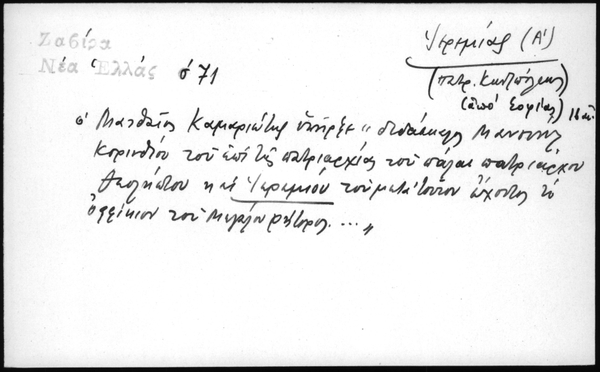 Ζαβίρα
Νέα Ἑλλάς σ 71
Ἱερεμίας (Α')
(πατρ. Κωνσ/πόλεως)
(ἀπό Σοφίας) 16 αἰ.
ὁ Ματθαῖος Καμαριώτης ὑπῆρξε "διδάσκαλος Μανουὴλ
Κορινθίου τοῦ ἐπί τῆς πατριαρχίας τοῦ πάλαι πατριάρχου
Θεολήπτου καὶ Ἱερεμίου τοῦ μετὰ τοῦτον ἔχοντος τὸ
ὀφφίκιον τοῦ Μεγάλου ρήτορος. ..."